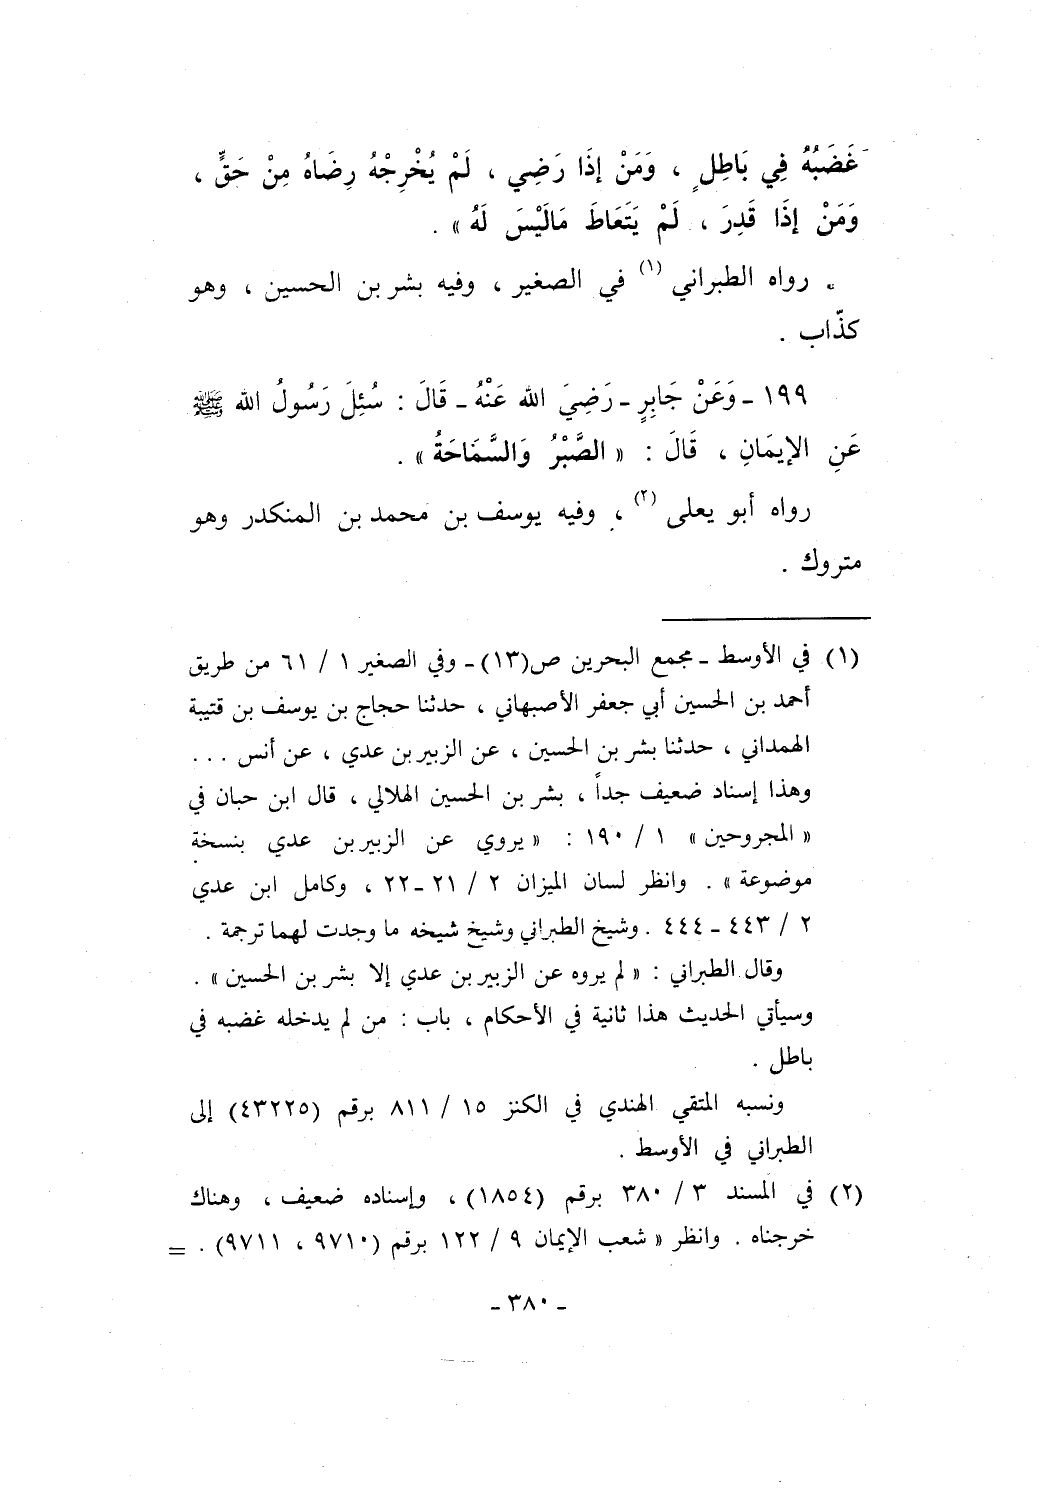 غَضَبُهُ فِي بَاطِلٍ ، وَمَنْ إِذَا رَضِي ، لَمْ يُخْرِجْهُ رِضَاهُ مِنْ حَقٍّ ،
وَمَنْ إِذَا قَدِرَ ، لَمْ يَتَعَاطَ مَالَيْسَ لَهُ » .
رواه الطبراني (١) في الصغير ، وفيه بشر بن الحسين ، وهو
كذّاب .
١٩٩ ـ وَعَنْ جَابِرٍ ـ رَضِيَ الله عَنْهُ ـ قَالَ : سُئِلَ رَسُولُ الله ﷺ
عَنِ الإِيمَانِ ، قَالَ : « الصَّبْرُ وَالسَّمَاحَةُ » .
رواه أبو يعلى (٢) ، وفيه يوسف بن محمد بن المنكدر وهو
متروك .
(١) في الأوسط ـ مجمع البحرين ص(١٣) ـ وفي الصغير ١ / ٦١ من طريق
أحمد بن الحسين أبي جعفر الأصبهاني ، حدثنا حجاج بن يوسف بن قتيبة
الهمداني ، حدثنا بشر بن الحسين ، عن الزبير بن عدي ، عن أنس ...
وهذا إسناد ضعيف جداً ، بشر بن الحسين الهلالي ، قال ابن حبان في
« المجروحين » ١ / ١٩٠ : « يروي عن الزبير بن عدي بنسخة
موضوعة » . وانظر لسان الميزان ٢ / ٢١ ـ ٢٢ ، وكامل ابن عدي
٢ / ٤٤٣ ـ ٤٤٤ . وشيخ الطبراني وشيخ شيخه ما وجدت لهما ترجمة .
وقال الطبراني : « لم يروه عن الزبير بن عدي إلا بشر بن الحسين » .
وسيأتي الحديث هذا ثانية في الأحكام ، باب : من لم يدخله غضبه في
باطل .
ونسبه المتقي الهندي في الكنز ١٥ / ٨١١ برقم (٤٣٢٢٥) إلى
الطبراني في الأوسط .
(٢) في المسند ٣ / ٣٨٠ برقم (١٨٥٤) ، وإسناده ضعيف ، وهناك
خرجناه . وانظر « شعب الإيمان ٩ / ١٢٢ برقم (٩٧١٠ ، ٩٧١١) . =
ـ ٣٨٠ ـ